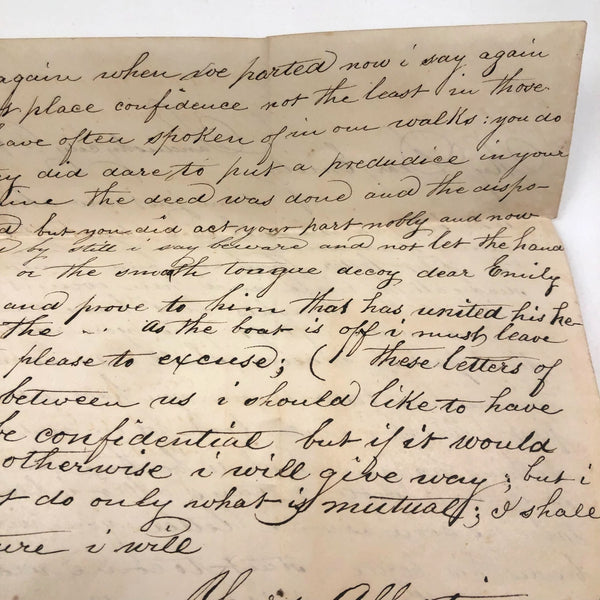 again when we parted now i say again
t place confidence not the least in those
have often spoken of in our walks; you do
y did dare to put a predudice in your
line the deed was done and the dispo-
d but you did act your part nobly and now
by still i say beware and not let the hand
or the smooth tongue decoy dear Emily
and prove to him that has united his he-
the as the boat is off i must leave
please to excuse; ( these letters of
between us i should like to have
be confidential but if it would
otherwise i will give way; but i
t do only what is mutual; I shall
ure i will